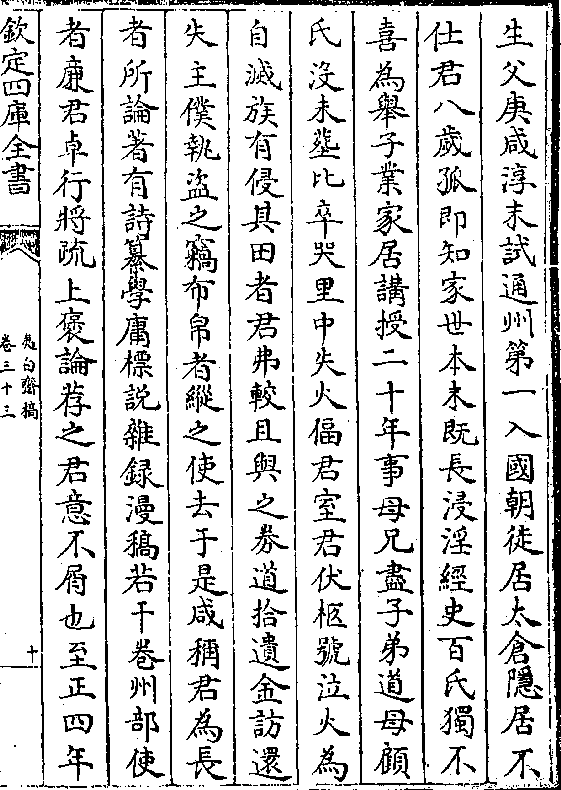 生父庚咸淳末試通州第一入國朝徙居太倉隱居不
仕君八歲孤即知家世本末既長浸淫經史百氏獨不
喜為舉子業家居講授二十年事母兄盡子弟道母顧
氏沒未塟比卒哭里中失火偪君室君伏柩號泣火為
自滅族有侵其田者君弗較且與之劵道拾遺金訪還
失主僕執盜之竊布帛者縱之使去于是咸稱君為長
者所論著有詩纂學庸標說雜録漫稿若干卷州部使
者亷君卓行將疏上褒論荐之君意不屑也至正四年
欽定四庫全書
夷白齋稿
卷三十三
十